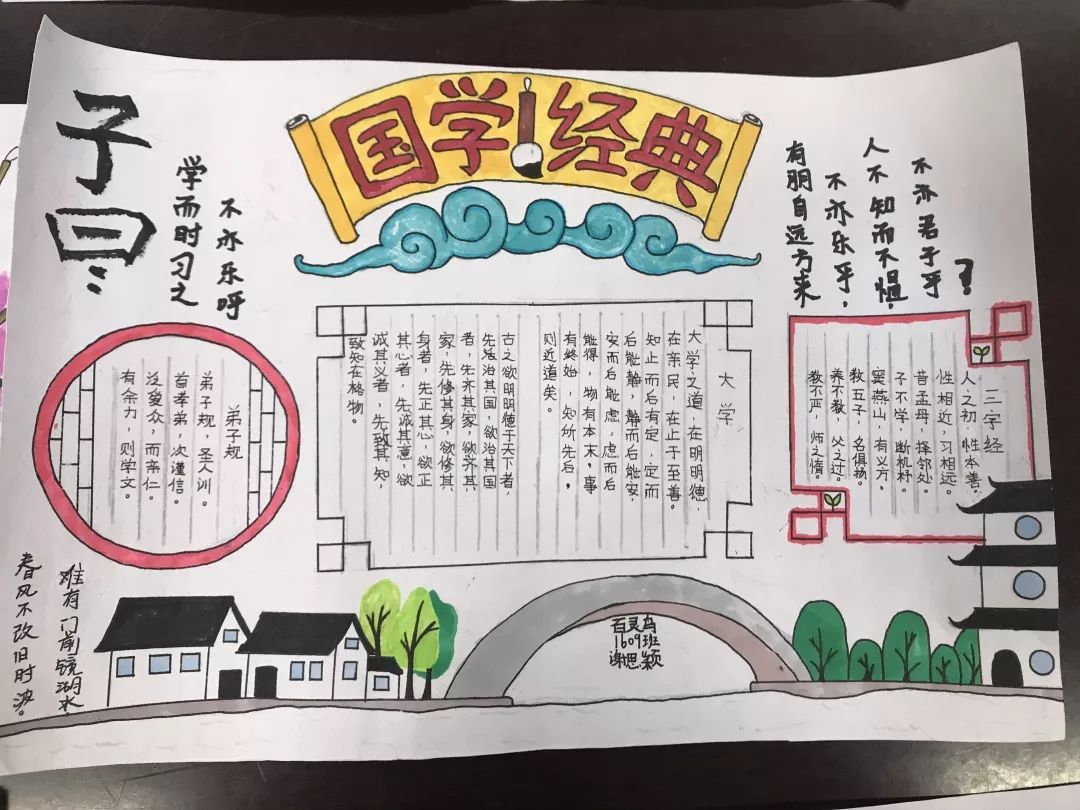 国学经典
子曰:
学而时习之
不亦乐呼
有朋自远方来
不亦乐乎,
人不知而不愠,
不亦君子乎
?
弟子规
弟子规,圣人训。
首孝弟,次谨信。
泛爱众,而亲仁。
有余力,则学文。
大学
大学之道,在明明德,
在亲民,在止于至善。
知止而后有定,定而
后能静,静而后能安,
安而后能虑,虑而后
能得,物有本末,事
有终始,知所先后,
则近道矣。
古之欲明明德于天下者,
先治其国,欲治其国
者,先齐其家,欲齐其
家,先修其身,欲修其
身者,先正其心,欲正
其心者,先诚其意,欲
诚其义者,先致其知,
致知在格物。
三字经
人之初,性本善,
性相近,习相远。
昔孟母,择邻处。
子不学,断机杼。
窦燕山,有义方,
教五子,名俱扬。
养不教,父之过。
教不严,师之惰。
难有门前镜湖水,
春风不改旧时波。
百灵鸟
1609班
谢思颖